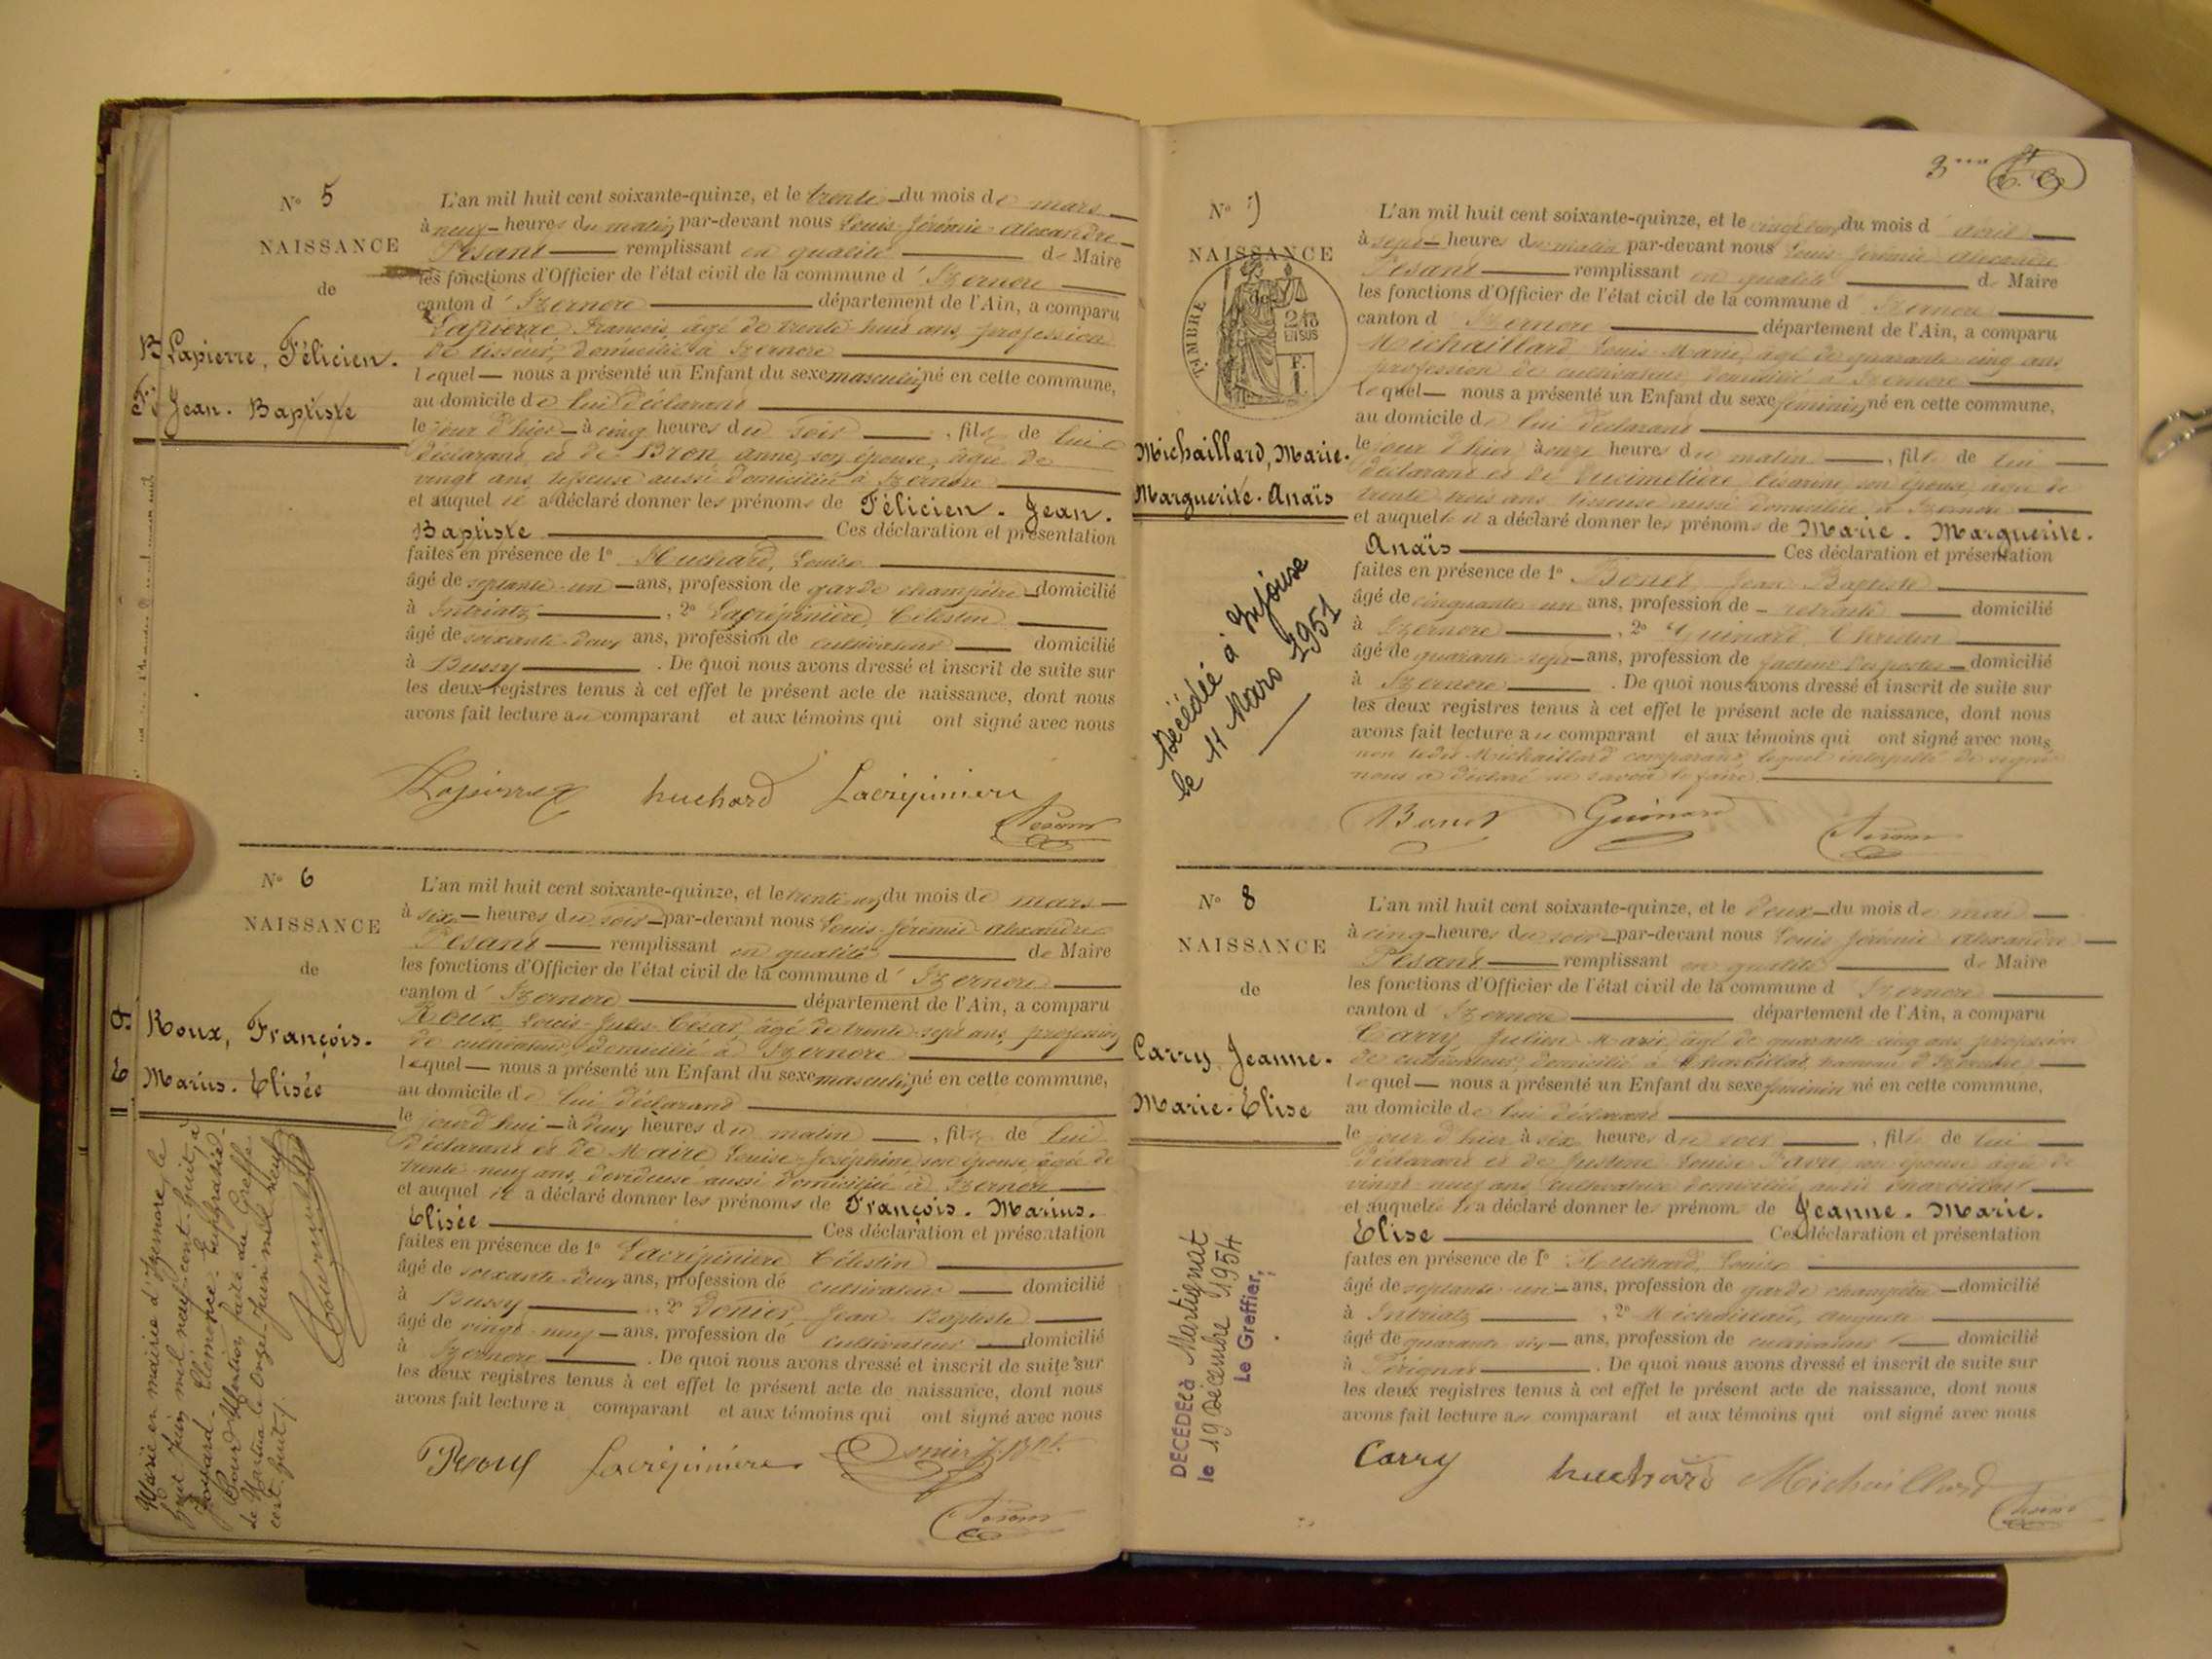 N° 5
NAISSANCE
de
Lapierre, Félicien.
Jean. Baptiste
L'an mil huit cent soixante-quinze, et le trente du mois de mars
à neuf heures du matin par-devant nous Louis-Jérémie-Alexandre
Pesant remplissant en qualité de Maire
les fonctions d'Officier de l'état civil de la commune d'Izernore
canton d'Izernore département de l'Ain, a comparu
Lapierre François, âgé de trente-huit ans, profession
de tisseur, domicilié à Izernore
lequel nous a présenté un Enfant du sexe masculin né en cette commune,
au domicile de lui déclarant
le jour d'hier à cinq heures du soir, fils de lui
déclarant et de Bron Anne, son épouse, âgée de
vingt ans, tisseuse aussi domiciliée à Izernore
et auquel il a déclaré donner les prénoms de Félicien. Jean.
Baptiste Ces déclaration et présentation
faites en présence de 1° Huchard, Louis
âgé de septante-un ans, profession de garde champêtre domicilié
à Intriatz, 2° Lacrépinière, Célestin
âgé de soixante-deux ans, profession de cultivateur domicilié
à Bussy. De quoi nous avons dressé et inscrit de suite sur
les deux registres tenus à cet effet le présent acte de naissance, dont nous
avons fait lecture au comparant et aux témoins qui ont signé avec nous
Lapierre huchard Lacrépiniere
Pesant
N° 6
NAISSANCE
de
Roux, François.
Marius. Elisée
L'an mil huit cent soixante-quinze, et le trente-un du mois de mars
à six heures du soir par-devant nous Louis-Jérémie-Alexandre
Pesant remplissant en qualité de Maire
les fonctions d'Officier de l'état civil de la commune d'Izernore
canton d'Izernore département de l'Ain, a comparu
Roux, Louis-Jules-César, âgé de trente-sept ans, profession
de cultivateur, domicilié à Izernore
lequel nous a présenté un Enfant du sexe masculin né en cette commune,
au domicile de lui déclarant
le jourd'hui à deux heures du matin, fils de lui
déclarant et de Maire Louise-Joséphine son épouse âgée de
trente-neuf ans, devideuse aussi domiciliée à Izernore
et auquel il a déclaré donner les prénoms de François. Marius.
Elisée Ces déclaration et présentation
faites en présence de 1° Lacrépinière Célestin
âgé de soixante-deux ans, profession de cultivateur domicilié
à Bussy, 2° Donier, Jean Baptiste
âgé de vingt-neuf ans, profession de cultivateur domicilié
à Izernore. De quoi nous avons dressé et inscrit de suite sur
les deux registres tenus à cet effet le présent acte de naissance, dont nous
avons fait lecture a comparant et aux témoins qui ont signé avec nous
Roux Lacrépinière Donier J. Bte
Pesant
Marié en mairie d'Izernore, le
huit juin mil neuf cent huit, à
Joyard Clémence
Pour Mention faite au Greffe
de Nantua le onze juin mil neuf
cent huit
3me
N° 7
NAISSANCE
de
TIMBRE
2/10
EN SUS
F.
1.
Michaillard, Marie.
Marguerite. Anaïs
Décédée à Injoux
le 11 Mars 1951
L'an mil huit cent soixante-quinze, et le du mois d'avril
à sept heures du matin par-devant nous Louis-Jérémie Alexandre
Pesant remplissant en qualité de Maire
les fonctions d'Officier de l'état civil de la commune d'Izernore
canton d'Izernore département de l'Ain, a comparu
Michaillard Louis-Marie, âgé de quarante-cinq ans
profession de cultivateur, domicilié à Izernore
lequel nous a présenté un Enfant du sexe féminin né en cette commune,
au domicile de lui déclarant
le jour d'hier à onze heures du matin, fille de lui
déclarant et de son épouse, âgée de
trente-trois ans tisseuse aussi domiciliée à Izernore
et auquel il a déclaré donner les prénoms de Marie. Marguerite.
Anaïs Ces déclaration et présentation
faites en présence de 1° Bonet Jean Baptiste
âgé de cinquante-un ans, profession de retraité domicilié
à Izernore, 2° Guinard
âgé de quarante-sept ans, profession de facteur des postes domicilié
à Izernore. De quoi nous avons dressé et inscrit de suite sur
les deux registres tenus à cet effet le présent acte de naissance, dont nous
avons fait lecture au comparant et aux témoins qui ont signé avec nous
non ledit Michaillard comparant, lequel interpellé de signer
nous a déclaré ne savoir le faire.
Bonet Guinard
Pesant
N° 8
NAISSANCE
de
Carry Jeanne.
Marie. Elise
DECEDE à Martignat
le 19 Décembre 1954
Le Greffier,
L'an mil huit cent soixante-quinze, et le deux du mois de mai
à cinq heures du soir par-devant nous Louis Jérémie Alexandre
Pesant remplissant en qualité de Maire
les fonctions d'Officier de l'état civil de la commune d'Izernore
canton d'Izernore département de l'Ain, a comparu
Carry Julien Marie âgé de quarante-cinq ans profession
de cultivateur, domicilié à Charbillat, hameau d'Izernore
lequel nous a présenté un Enfant du sexe féminin né en cette commune,
au domicile de lui déclarant
le jour d'hier à six heures du soir, fille de lui
déclarant et de Justine Louise Favre son épouse âgée de
vingt-neuf ans cultivatrice domiciliée audit Charbillat
et auquel il a déclaré donner les prénom de Jeanne. Marie.
Elise Ces déclaration et présentation
faites en présence de 1° Huchard Louis
âgé de septante-un ans, profession de garde champêtre domicilié
à Intriatz, 2° Michaillard, Auguste
âgé de quarante-six ans, profession de cultivateur domicilié
à Perignat. De quoi nous avons dressé et inscrit de suite sur
les deux registres tenus à cet effet le présent acte de naissance, dont nous
avons fait lecture au comparant et aux témoins qui ont signé avec nous
Carry huchard Michaillard
Pesant